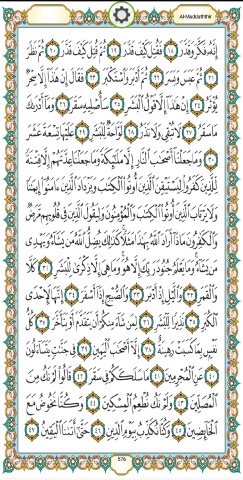 Al-Muddaththir
إِنَّهُ فَكَّرَ وَقَدَّرَ ١٨ فَقُتِلَ كَيْفَ قَدَّرَ ١٩ ثُمَّ قُتِلَ كَيْفَ قَدَّرَ ٢٠ ثُمَّ نَظَرَ
٢١ ثُمَّ عَبَسَ وَبَسَرَ ٢٢ ثُمَّ أَدْبَرَ وَٱسْتَكْبَرَ ٢٣ فَقَالَ إِنْ هَٰذَآ إِلَّا سِحْرٌ
يُؤْثَرُ ٢٤ إِنْ هَٰذَآ إِلَّا قَوْلُ ٱلْبَشَرِ ٢٥ سَأُصْلِيهِ سَقَرَ ٢٦ وَمَآ أَدْرَىٰكَ
مَا سَقَرُ ٢٧ لَا تُبْقِى وَلَا تَذَرُ ٢٨ لَوَّاحَةٌ لِّلْبَشَرِ ٢٩ عَلَيْهَا تِسْعَةَ عَشَرَ
٣٠ وَمَا جَعَلْنَآ أَصْحَٰبَ ٱلنَّارِ إِلَّا مَلَٰٓئِكَةً وَمَا جَعَلْنَا عِدَّتَهُمْ إِلَّا فِتْنَةً
لِّلَّذِينَ كَفَرُوا۟ لِيَسْتَيْقِنَ ٱلَّذِينَ أُوتُوا۟ ٱلْكِتَٰبَ وَيَزْدَادَ ٱلَّذِينَ ءَامَنُوٓا۟ إِيمَٰنًا
وَلَا يَرْتَابَ ٱلَّذِينَ أُوتُوا۟ ٱلْكِتَٰبَ وَٱلْمُؤْمِنُونَ وَلِيَقُولَ ٱلَّذِينَ فِى قُلُوبِهِم مَّرَضٌ
وَٱلْكَٰفِرُونَ مَاذَآ أَرَادَ ٱللَّهُ بِهَٰذَا مَثَلًا كَذَٰلِكَ يُضِلُّ ٱللَّهُ مَن يَشَآءُ وَيَهْدِى
مَن يَشَآءُ وَمَا يَعْلَمُ جُنُودَ رَبِّكَ إِلَّا هُوَ وَمَا هِىَ إِلَّا ذِكْرَىٰ لِلْبَشَرِ ٣١ كَلَّا
وَٱلْقَمَرِ ٣٢ وَٱلَّيْلِ إِذْ أَدْبَرَ ٣٣ وَٱلصُّبْحِ إِذَآ أَسْفَرَ ٣٤ إِنَّهَا لَإِحْدَى
ٱلْكُبَرِ ٣٥ نَذِيرًا لِّلْبَشَرِ ٣٦ لِمَن شَآءَ مِنكُمْ أَن يَتَقَدَّمَ أَوْ يَتَأَخَّرَ ٣٧ كُلُّ
نَفْسٍۭ بِمَا كَسَبَتْ رَهِينَةٌ ٣٨ إِلَّآ أَصْحَٰبَ ٱلْيَمِينِ ٣٩ فِى جَنَّٰتٍ يَتَسَآءَلُونَ
٤٠ عَنِ ٱلْمُجْرِمِينَ ٤١ مَا سَلَكَكُمْ فِى سَقَرَ ٤٢ قَالُوا۟ لَمْ نَكُ مِنَ
ٱلْمُصَلِّينَ ٤٣ وَلَمْ نَكُ نُطْعِمُ ٱلْمِسْكِينَ ٤٤ وَكُنَّا نَخُوضُ مَعَ
ٱلْخَآئِضِينَ ٤٥ وَكُنَّا نُكَذِّبُ بِيَوْمِ ٱلدِّينِ ٤٦ حَتَّىٰٓ أَتَىٰنَا ٱلْيَقِينُ ٤٧
576